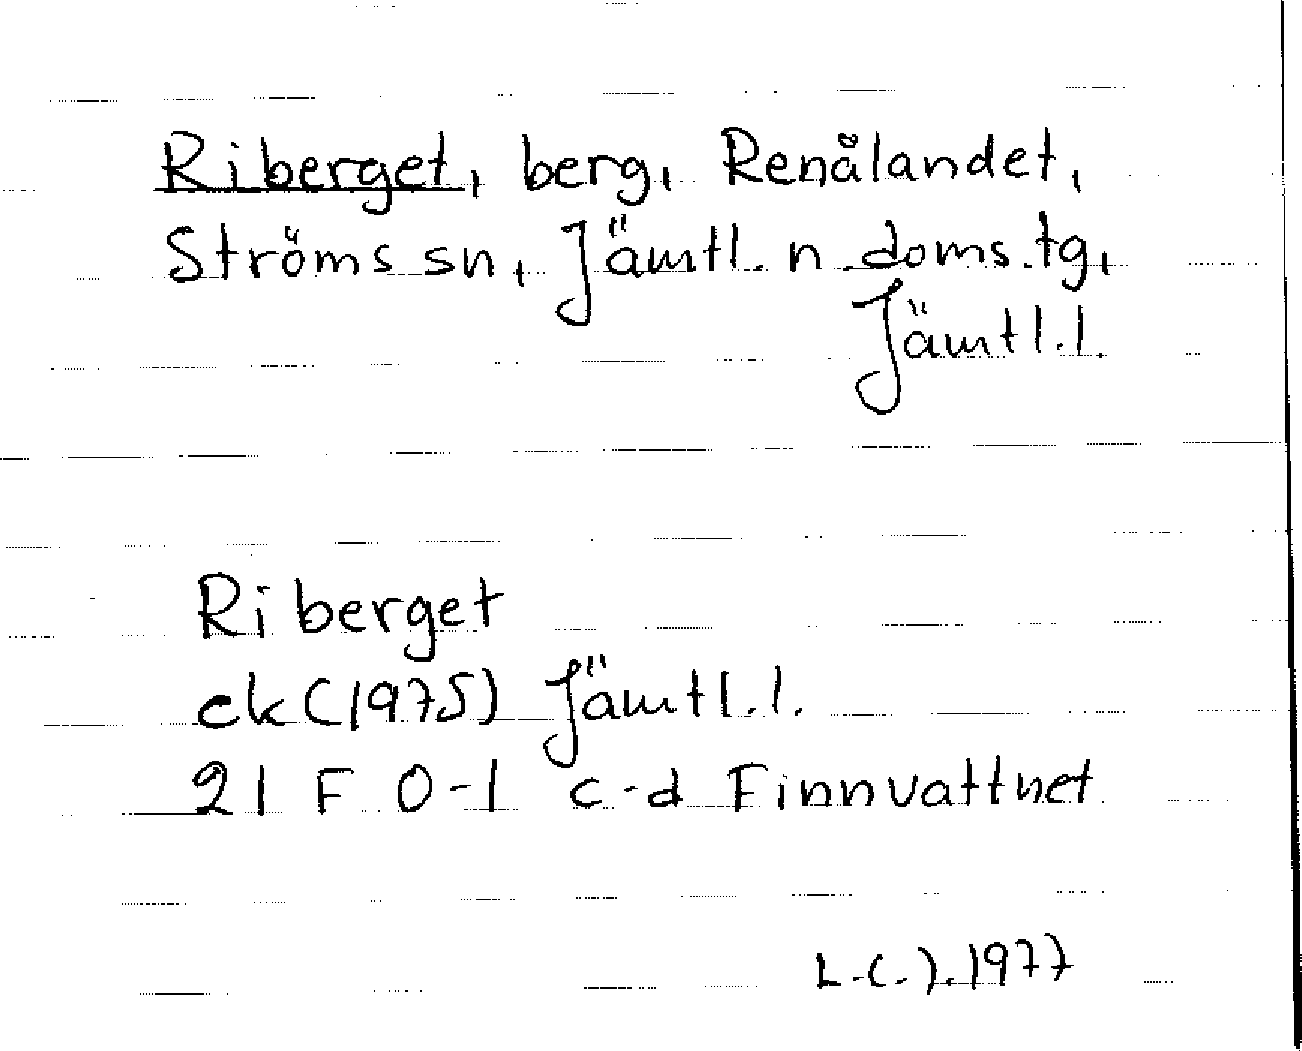 Riberget, berg, Renålandet,
Ströms sn, Jämtl. n. doms.tg,
Jämtl.l.
Riberget
ek (1975) Jämtl.l.
21 F 0-1 c-d Finnvattnet
L.C.J. 1977